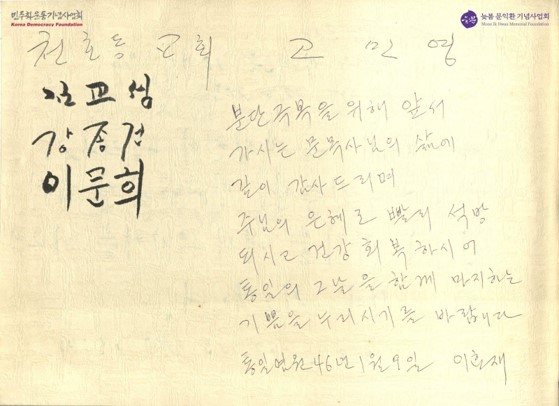 민주화운동기념사업회
Korea Democracy Foundation
늦봄 문익환 기념사업회
Moon Ik Hwan Memorial Foundation
천호동 교회 고민영
김교성
강종검
이문희
분단극복을 위해 앞서
가시는 문목사님의 삶에
깊이 감사드리며
주님의 은혜로 빨리 석방
되시고 건강 회복하시어
통일의 그날을 함께 마지하는
기쁨을 누리시기를 바랍니다
통일염원 46년 1월 9일 이효재